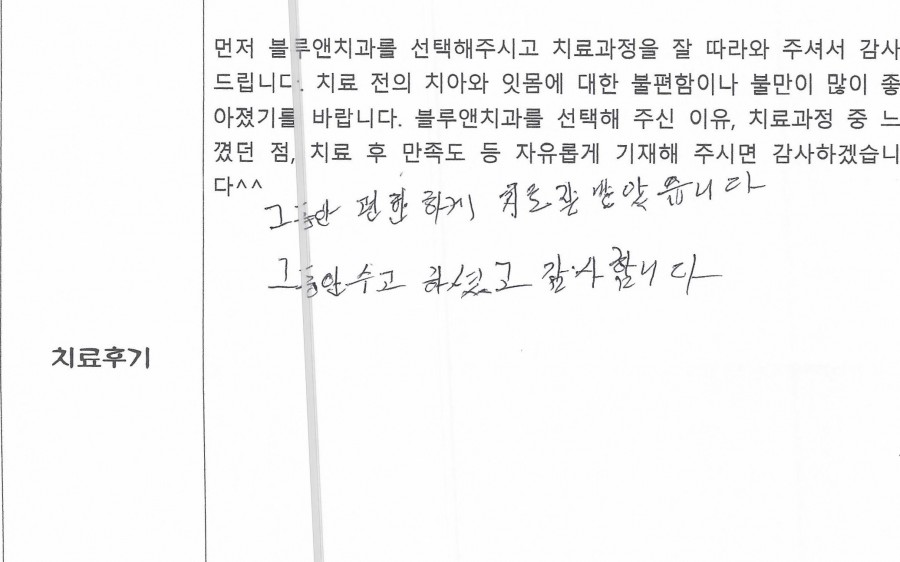 먼저 블루앤치과를 선택해주시고 치료과정을 잘 따라와 주셔서 감사
드립니다. 치료 전의 치아와 잇몸에 대한 불편함이나 불만이 많이 좋
아졌기를 바랍니다. 블루앤치과를 선택해 주신 이유, 치료과정 중 느
꼈던 점, 치료 후 만족도 등 자유롭게 기재해 주시면 감사하겠습니
다^^
그동안 편한하게 치료잘 받았습니다
그동안 수고 하셨고 감사합니다
치료후기